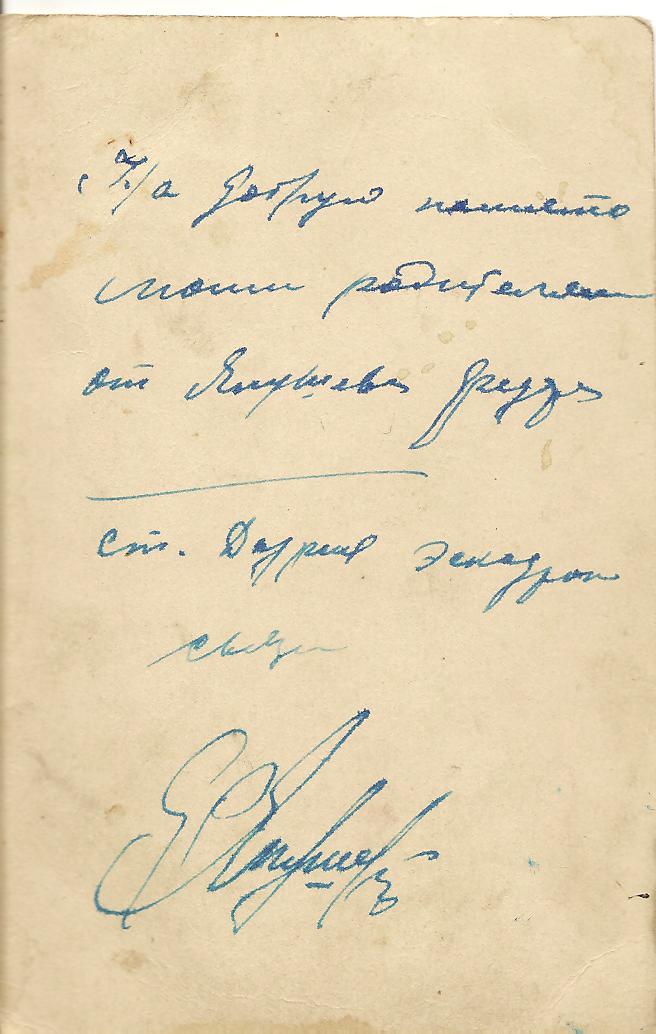 На добрую память
моим родителям
от Янушева Фредза
ст. Даурия эскадрон
связи